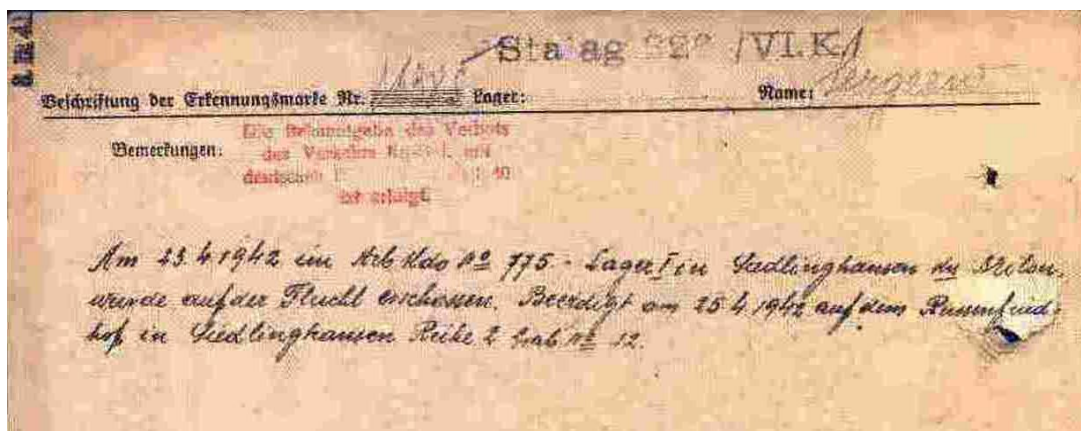 Stalag /VI.K/
Beschriftung der Erkennungsmarke Nr. Lager: Name:
Bemerkungen: Die Bekanntgabe des Verbots
des Verkehrs
deutschen 40
ist erfolgt
Am 23.4.1942 im Arb Kdo No 775 - Lager I in Siedlinghausen
wurde auf der Flucht erschossen. Beerdigt am 25.4.1942 auf dem Russenfried-
hof in Siedlinghausen Reihe 2 Grab No 12.